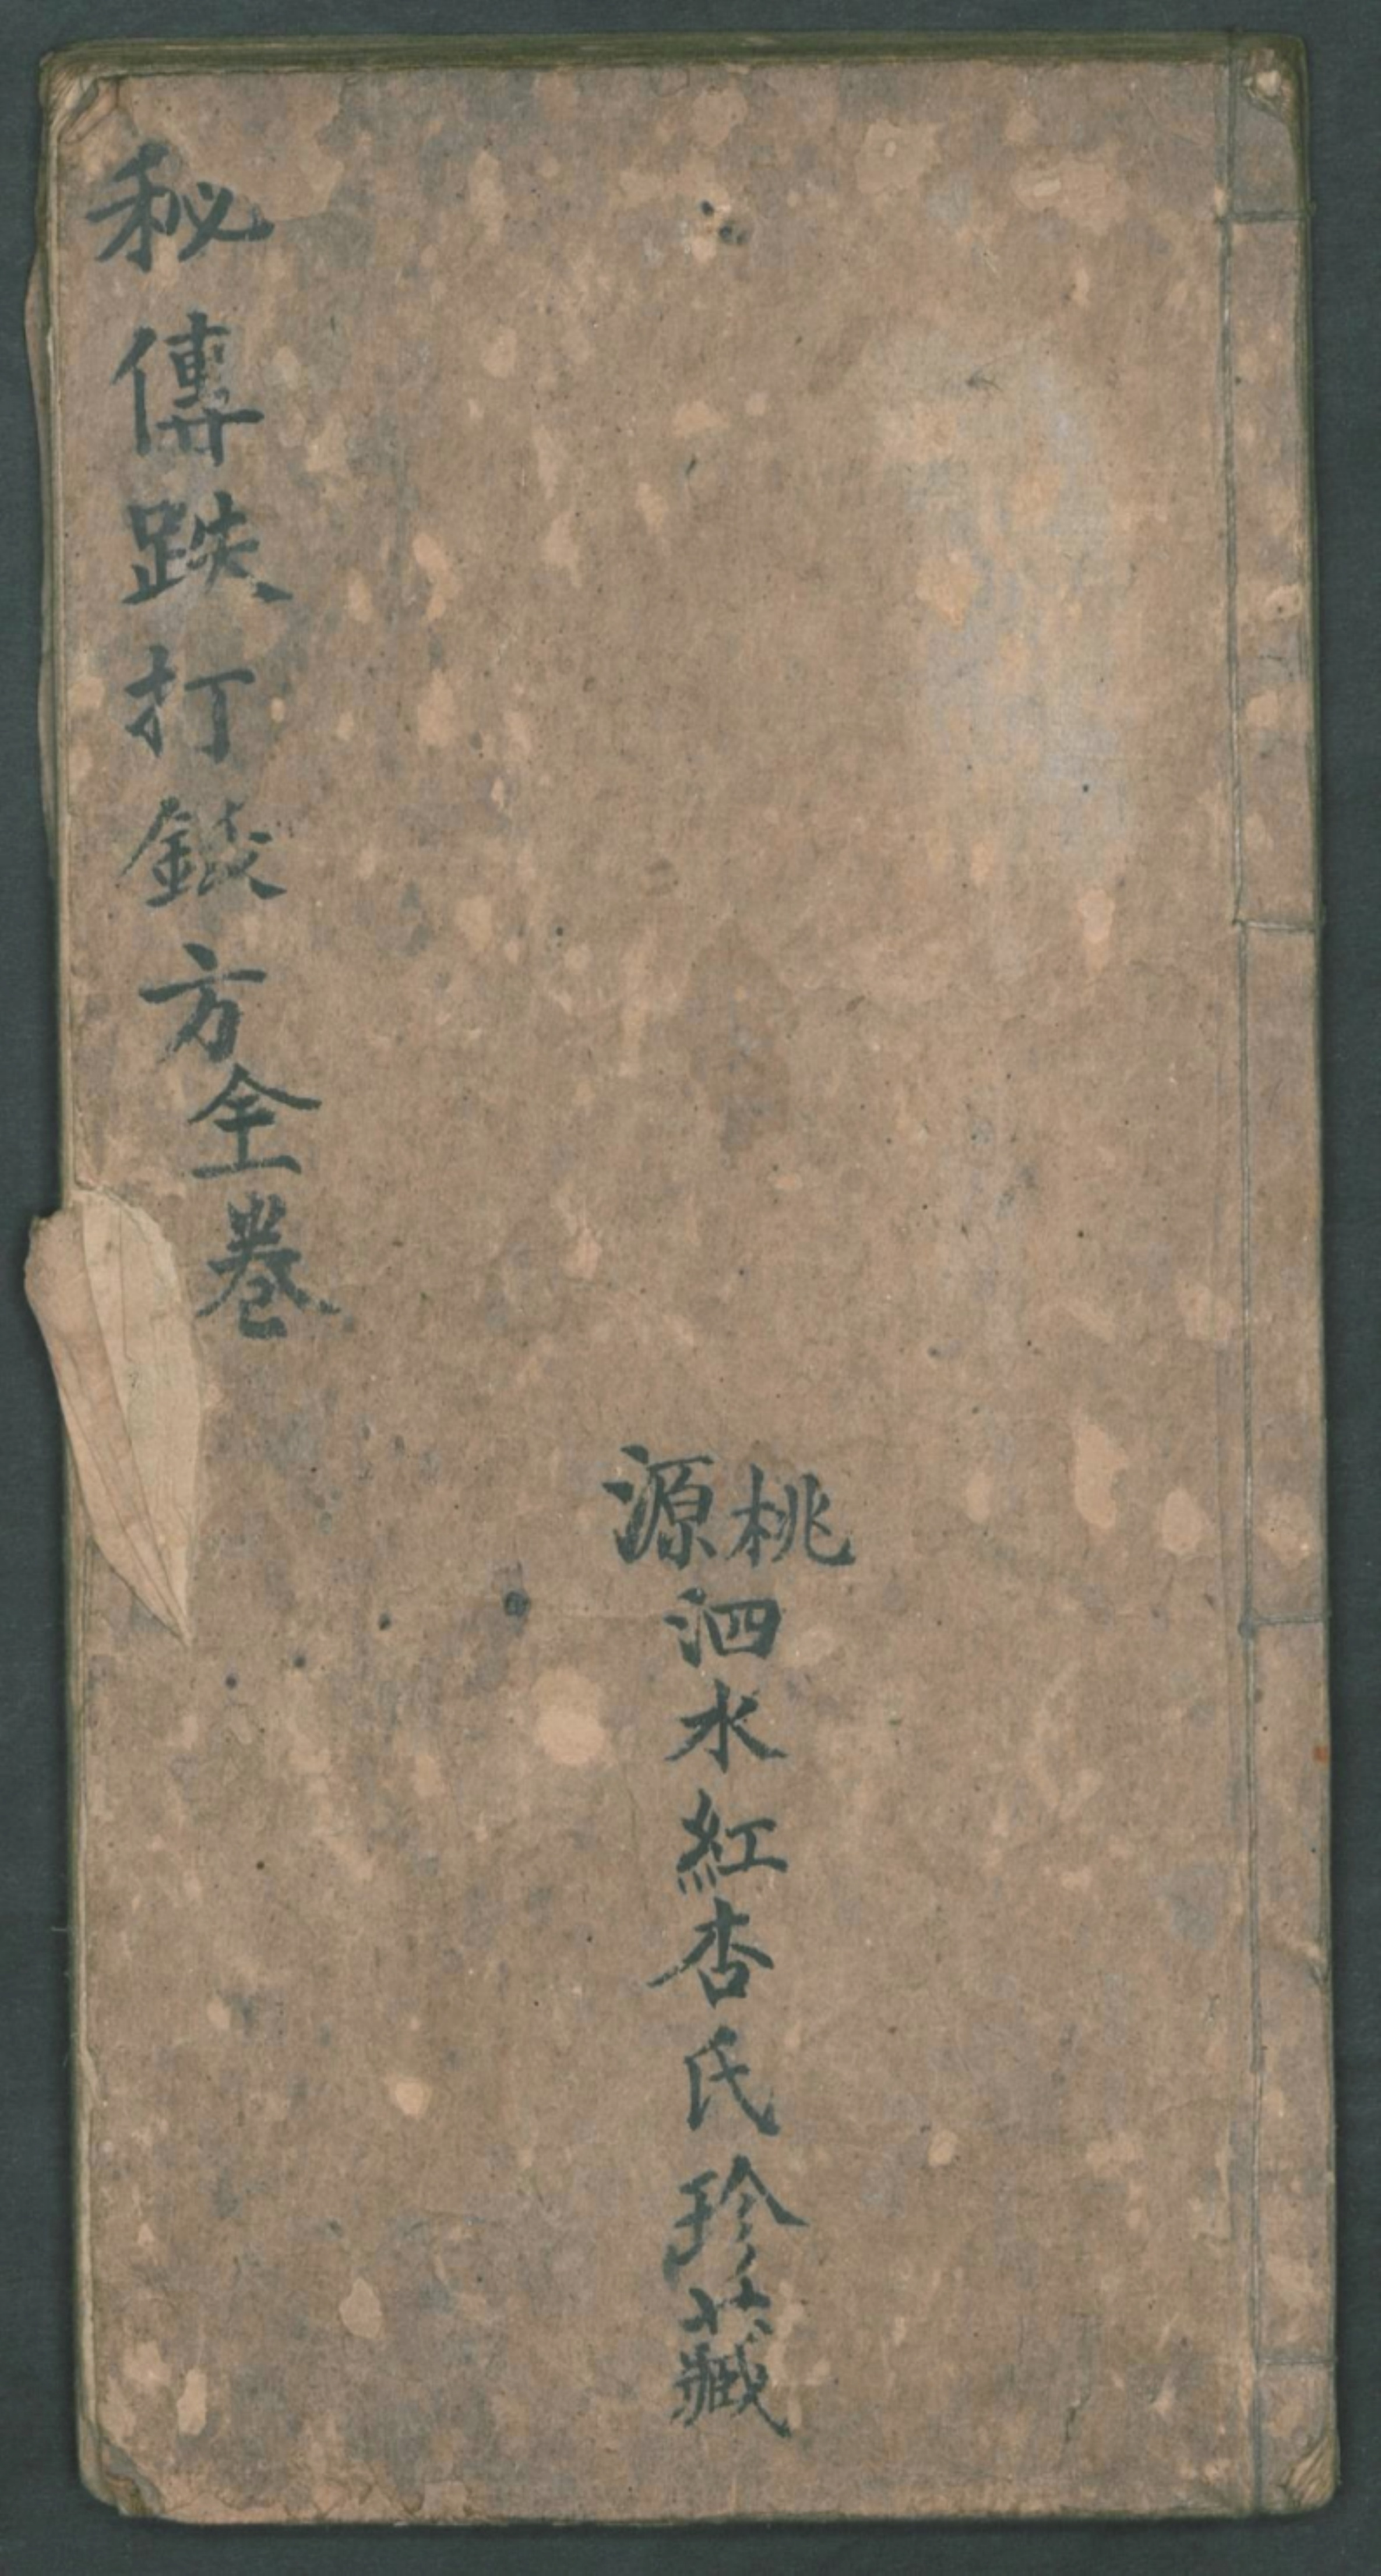 桃源泗水紅杏氏珍藏
秘傳跌打方全卷